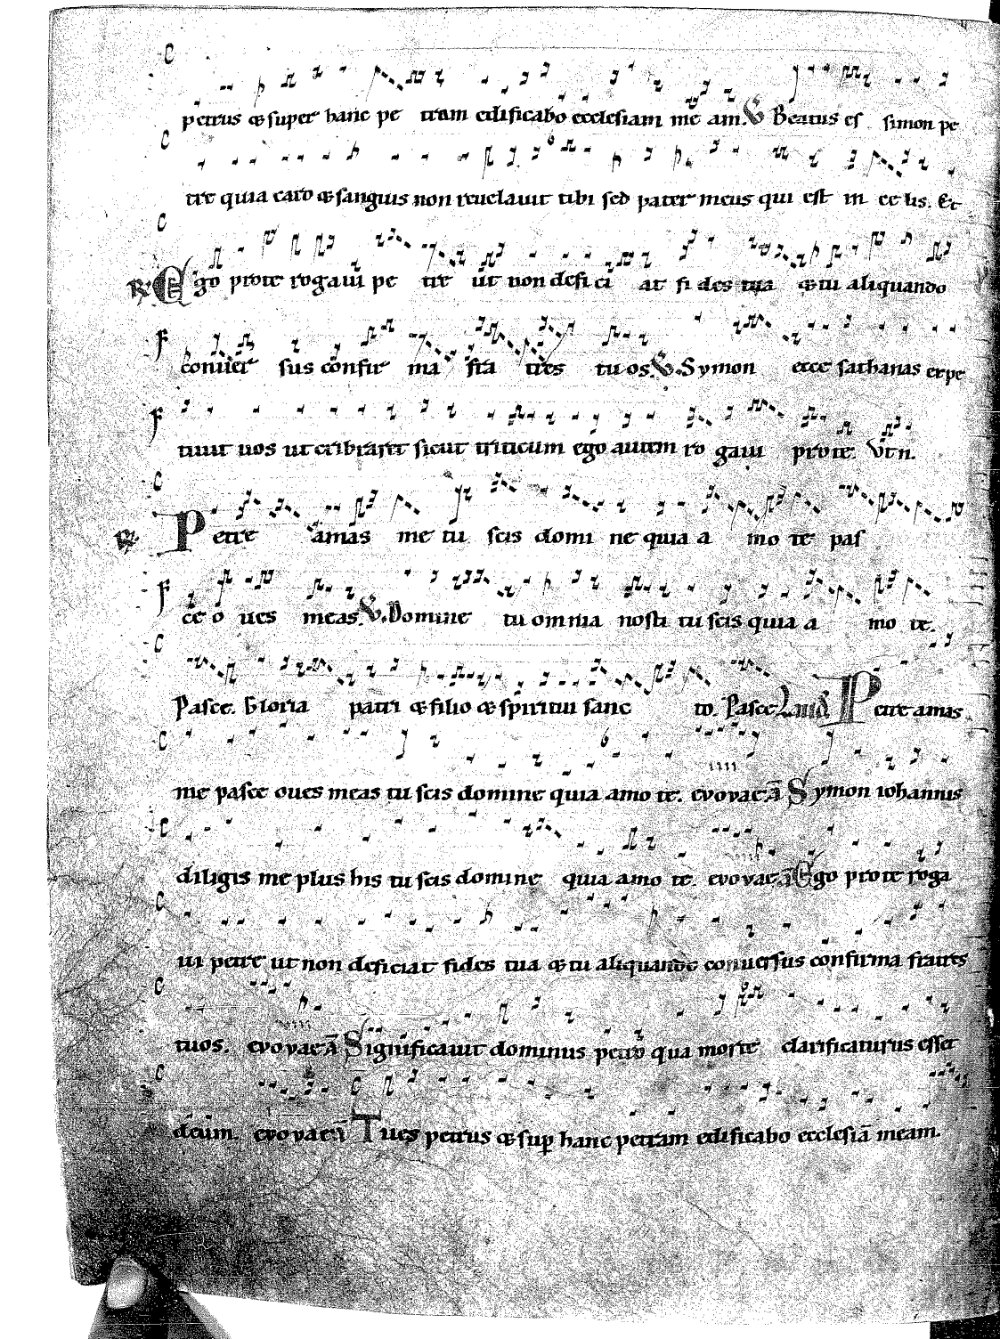 petrus & super hanc pe tram edificabo ecclesiam me am. V Beatus es simon pe
tre quia caro & sanguis non reuelauit tibi sed pater meus qui est in ce lis. Et
R Ego pro te rogaui pe tre ut non defi ci at fi des tua & tu aliquando
conuer sus confir ma fra tres tu os. V. Symon ecce sathanas expe
tiuit uos ut cribraret sicut triticum ego autem ro gaui pro te. Vt n.
R Petre amas me tu scis domi ne quia a mo te pas
ce o ues meas. V. Domine tu omnia nosti tu scis quia a mo te.
Pasce. Gloria patri & filio & spiritui sanc to. Pasce Laud Petre amas
me pasce oues meas tu scis domine quia amo te. euouaeā Symon iohannis
diligis me plus his tu scis domine quia amo te. euouaeā Ego pro te roga
ui petre ut non deficiat fides tua & tu aliquando conuersus confirma fratres
tuos. euouaeā Significauit dominus petro qua morte clarificaturus esset
deum. euouaeā Tu es petrus & sup hanc petram edificabo ecclesiā meam.